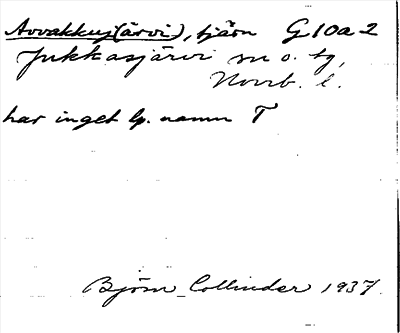 Avvakkuj(ärvi), tjärn G10a2
Jukkasjärvi sn o. tg,
Norrb. l.
har inget lp. namn T
Björn Collinder 1937.